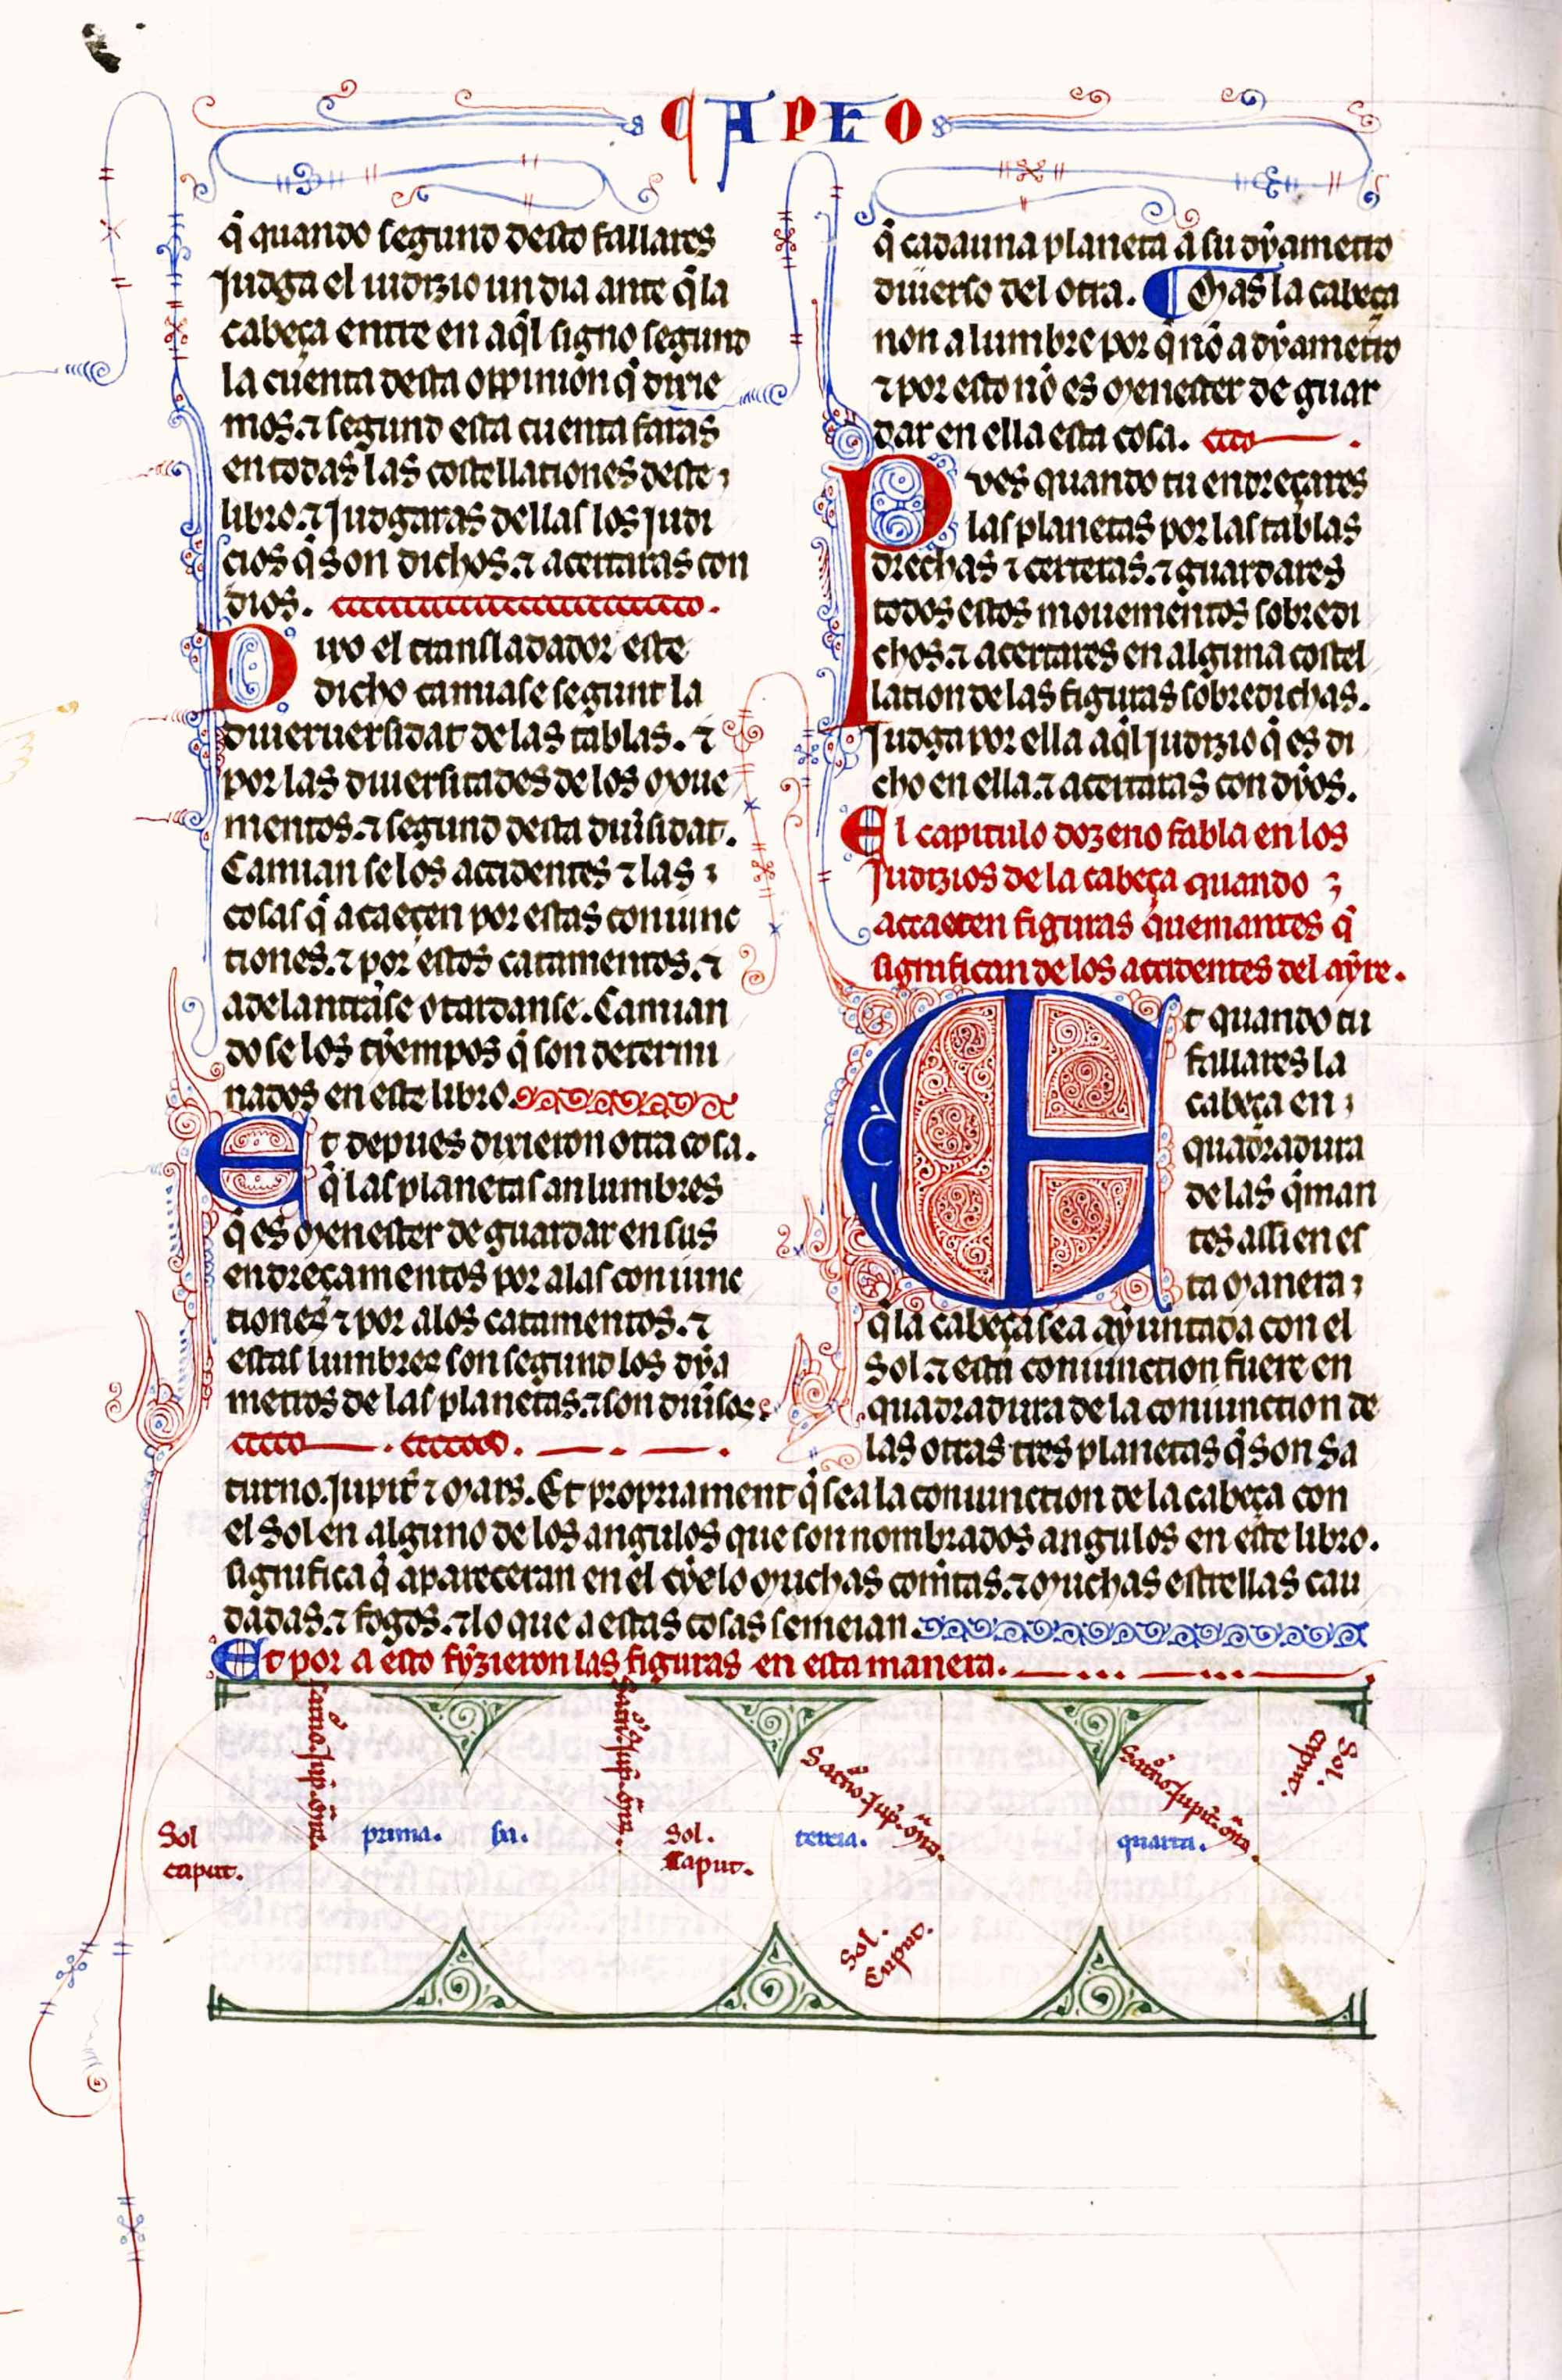 CAPLO
q̃ quando segund desto fallares
Judga el iudizio un dia ante q̃ la
cabeça entre en aq̃l signo segund
la cuenta desta oppinion q̃ dixie
mos. ⁊ segund esta cuenta faras
en todas las costellationes deste
libro. ⁊ Judgaras dellas los Judi
cios q̃ son dichos. ⁊ acertaras con
dios.
Dixo el transladador este
dicho camiase segunt la
diuieruersidat de las tablas. ⁊
por las diuersitades de los moue
mentos. ⁊ segund desta diũsidat.
Camian se los accidentes ⁊ las
cosas q̃ acaeçen por estas coniunc
tiones. ⁊ por estos catamentos. ⁊
adelantrãse o tardanse. Camian
do se los tyempos q̃ son determi
nados en este libro.
Et depues dixieron otra cosa.
q̃ las planetas an lumbres
q̃ es menester de guardar en sus
endreçamentos por a las coniunc
tiones ⁊ por a los catamentos. ⁊
estas lumbres son segund los dya
metros de las planetas. ⁊ son diũsos
q̃ cada una planeta a su dyametro
diuerso del otra. ¶ Mas la cabeça
non a lumbre por q̃ nõ a dyametro
⁊ por esto nõ es menester de guar
dar en ella esta cosa.
Pves quando tu endreçares
las planetas por las tablas
drechas ⁊ certeras. ⁊ guardares
todos estos mouementos sobredi
chos. ⁊ acertares en alguna costel
lation de las figuras sobredichas.
Judga por ella aq̃l Judizio q̃ es di
cho en ella. ⁊ acertaras con dyos.
El capitulo dozeno fabla en los
Judizios de la cabeça quando
accaecen figuras quemantes q̃
significan de los accidentes del ayre.
Et quando tu
fallares la
cabeça en
quadradura
de las q̃man
tes assi en es
ta manera
q̃ la cabeça sea ayuntada con el
Sol. ⁊ esta coniunction fuere en
quadradura de la coniunction de
las otras tres planetas q̃ son Sa
turno. Jupit̃ ⁊ Mars. Et propriament q̃ sea la coniunction de la cabeça con
el Sol en alguno de los angulos que son nombrados angulos en este libro.
significa q̃ apareceran en el cyelo muchas comitas. ⁊ muchas estrellas cau
dadas. ⁊ fogos. ⁊ lo que a estas cosas semeian.
Et por a esto fyzieron las figuras en esta manera.
Sol
caput.
prima.
Sol.
Caput.
tercia.
Sol.
Caput.
quarta.
Sol.
caput.